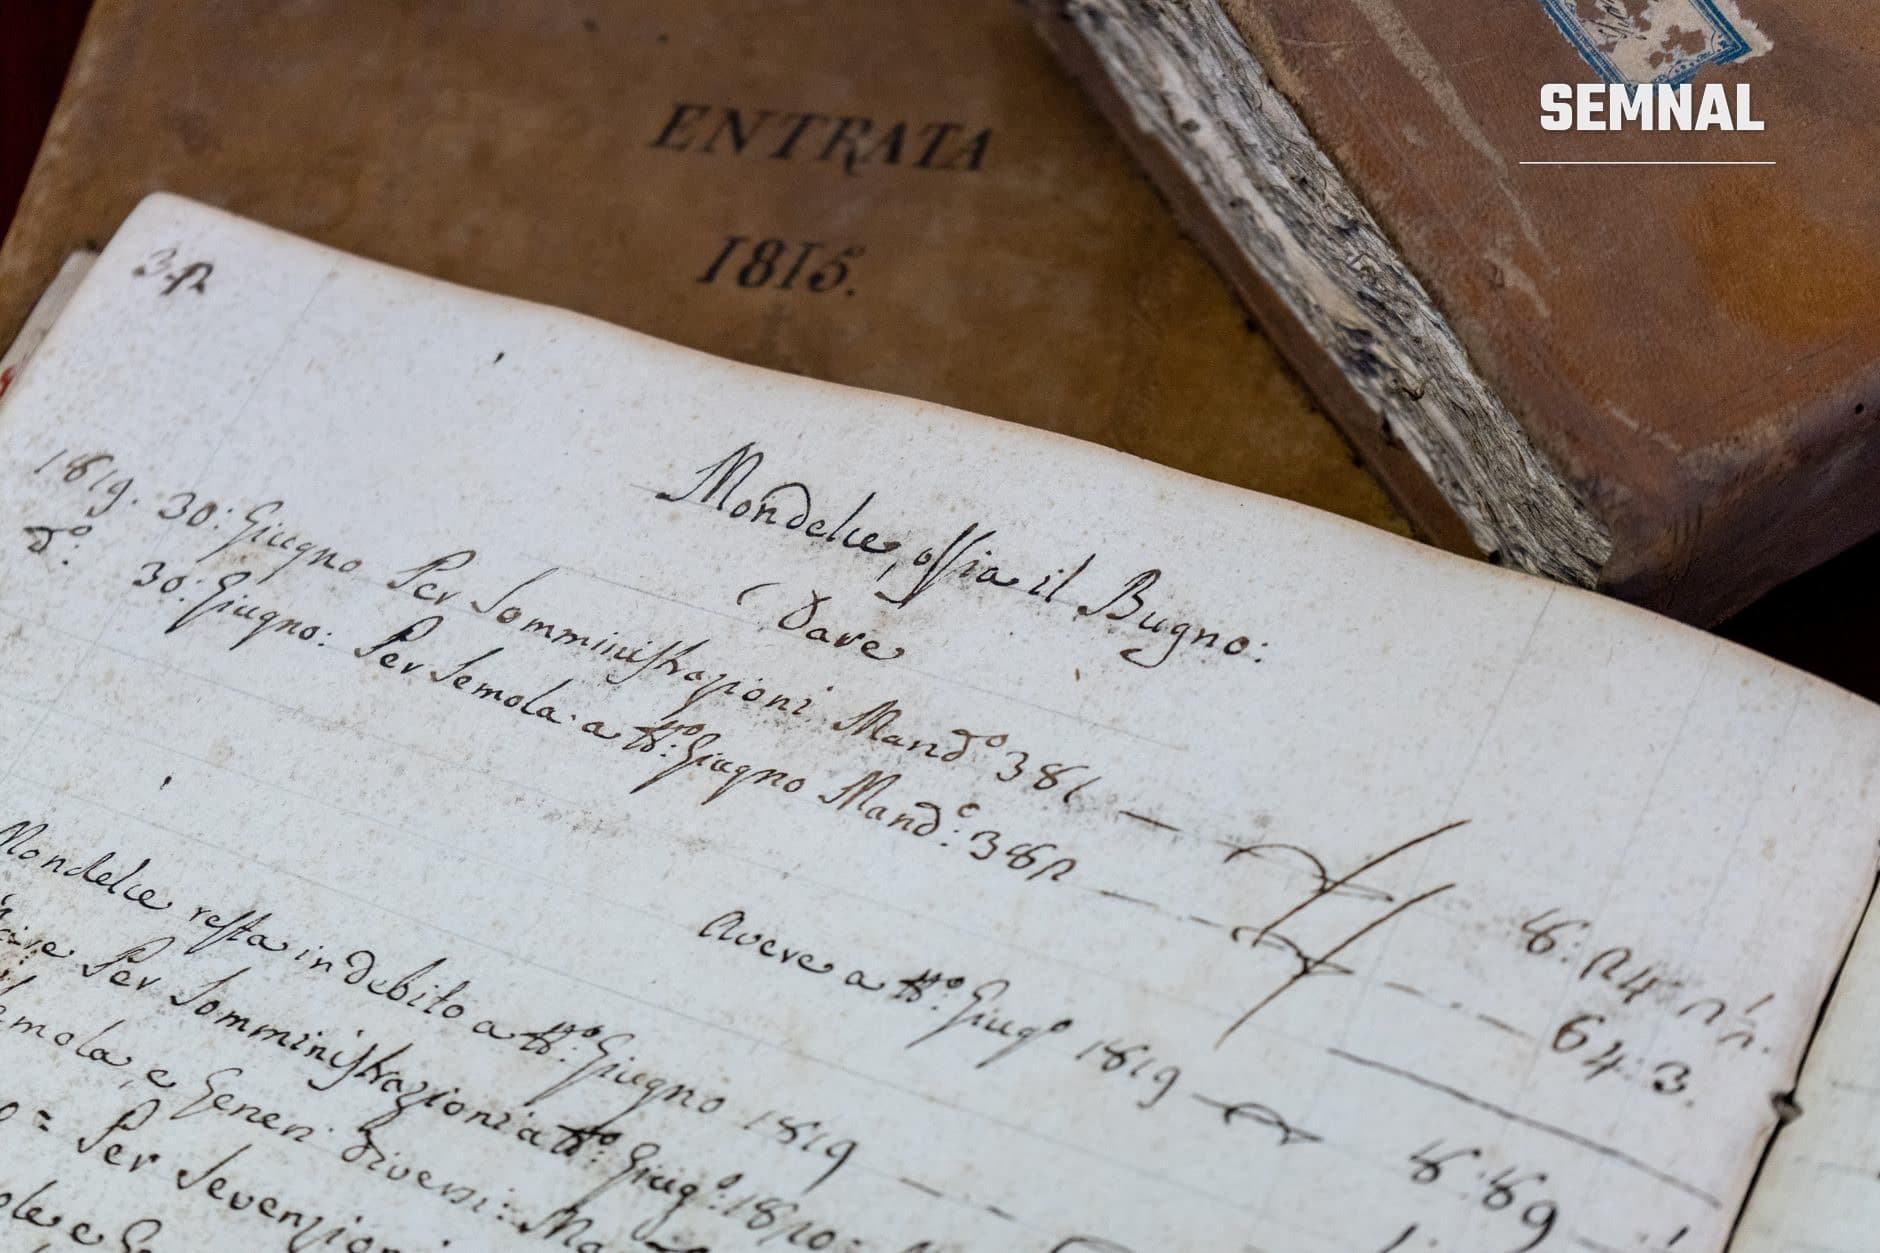 SEMNAL
ENTRATA
1815.
Mondelce, ossia il Bugno:
Dare
1819. 30: Giugno Per Somministrazioni Mand.º 381
d.º: 30: Giugno: Per Semola a Giugno Mand.º: 382
64: 3.
Avere a Giug.º 1819
89
Mondelce resta in debito a Giugno 1819
Per Somministrazioni a Giug.º: 1820:
Semola, e Generi diversi:
= Per Sovenzioni